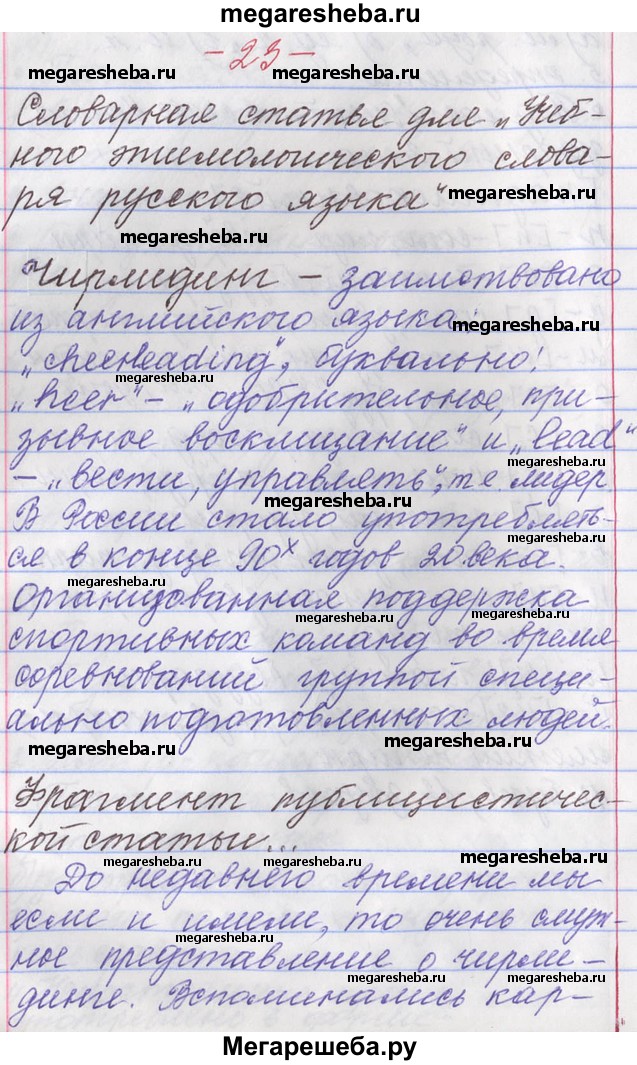 megaresheba.ru
- 23 -
megaresheba.ru
megaresheba.ru
Словарная статья для „Учеб-
ного этимологического слова-
ря русского языка“
megaresheba.ru
megaresheba.ru
Чирлидинг – заимствовано
из английского языка:
megaresheba.ru
„cheerleading“, буквально:
megaresheba.ru
„heer“ – „одобрительное, при-
зывное восклицание“ и „lead“
megaresheba.ru
– „вести, управлять“, т.е. лидер.
megaresheba.ru
В России стало употреблять-
ся в конце 90х годов 20 века.
megaresheba.ru
megaresheba.ru
Организованная поддержка
megaresheba.ru
спортивных команд во время
megaresheba.ru
соревнований группой специ-
ально подготовленных людей.
megaresheba.ru
megaresheba.ru
Фрагмент публицистичес-
кой статьи...
megaresheba.ru
megaresheba.ru
megaresheba.ru
До недавнего времени мы
если и имели, то очень смут-
megaresheba.ru
ное представление о чирли-
megaresheba.ru
динге. Вспоминались кар-
megaresheba.ru
Мегарешеба.ру